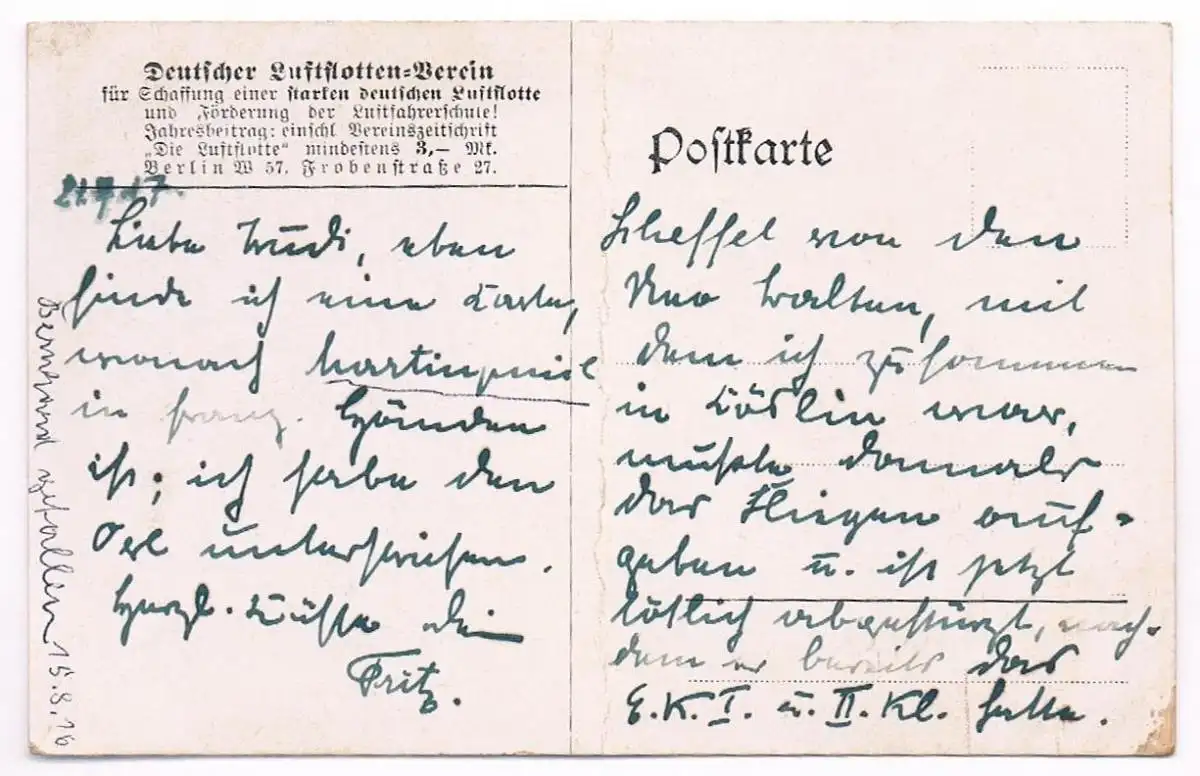 Deutscher Luftflotten-Verein
für Schaffung einer starken deutschen Luftflotte
und Förderung der Luftfahrerschule!
Jahresbeitrag: einschl Vereinszeitschrift
„Die Luftflotte“ mindestens 3,— Mk.
Berlin W 57. Frobenstraße 27.
21.7.17.
Liebe Trudi, eben
finde ich eine Karte,
wonach Martinpuich
in franz. Händen
ist; ich habe den
Ort unterstrichen.
Herzl. Küsse dein
Fritz.
Bernhard gefallen 15.8.16
Postkarte
Scheffel von den
walten, mit
dem ich zusammen
in Cöslin war,
mußte damals
das Fliegen auf-
geben u. ist jetzt
tötlich abgestürzt, nach-
dem er bereits das
E.K.I. u. II. Kl. hatte.